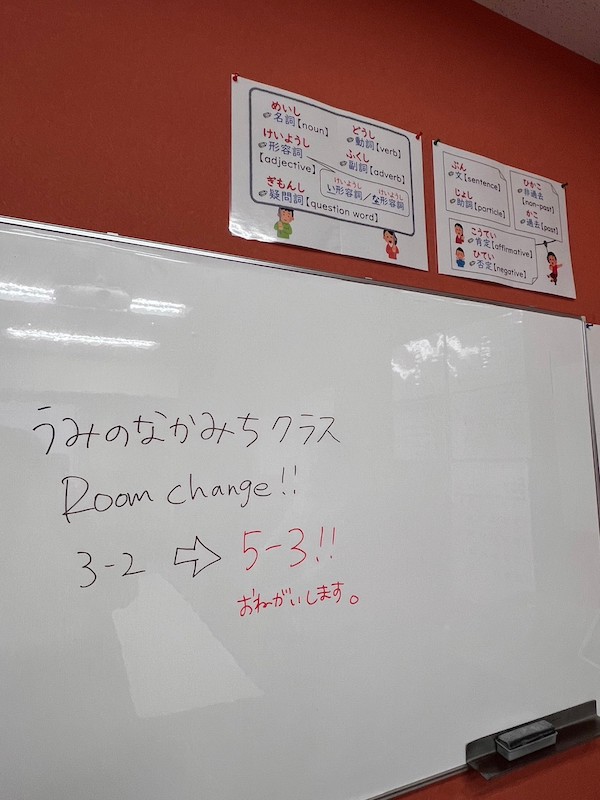 めいし
名詞【noun】
どうし
動詞【verb】
けいようし
形容詞
【adjective】
ふくし
副詞【adverb】
けいようし けいようし
い形容詞/な形容詞
ぎもんし
疑問詞【question word】
ぶん
文【sentence】
じょし
助詞【particle】
ひかこ
非過去
【non-past】
かこ
過去【past】
こうてい
肯定【affirmative】
ひてい
否定【negative】
うみのなかみちクラス
Room change!!
3-2 ⇨ 5-3!!
おねがいします。